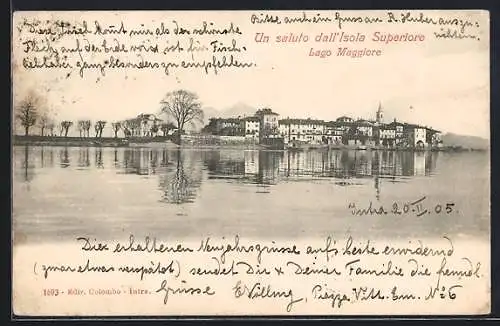 Diese Insel kommt mir als der schönste
Fleck auf der Erde vor & ist bis
ganz besonders zu empfehlen.
Bitte auch ein Gruss an R. Huber auszu-
richten.
Un saluto dall'Isola Superiore
Lago Maggiore
Intra 20-II. 05
Die erhaltenen Neujahrsgrüsse aufs beste erwidernd
(zwar etwas verspätet) sendet Dir & Deiner Familie die freundl.
1693 - Ediz. Colombo - Intra.
Grüsse E Villing, Piazza Vitt. Em. N° 6